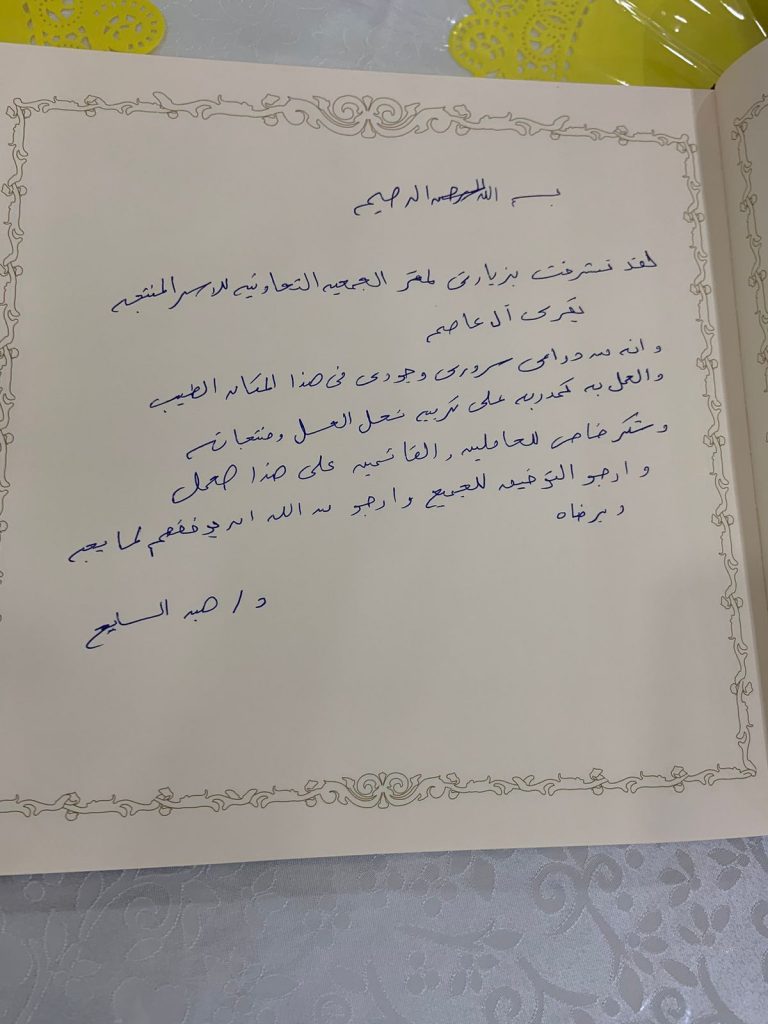 بسم الله الرحمن الرحيم
لقد تشرفت بزيارتى لمقر الجمعيه التعاونيه للاسر المنتجه
بقرى آل عاصم
وانه من دواعى سرورى وجودى فى هذا المكان الطيب
والعمل به كمدربه على تربيه نحل العسل ومنتجاته
وشكر خاص للعاملين والقائمين على هذا العمل
وارجو التوفيق للجميع وارجو من الله ان يوفقهم لما يحبه
ويرضاه
د/ هبه السايح